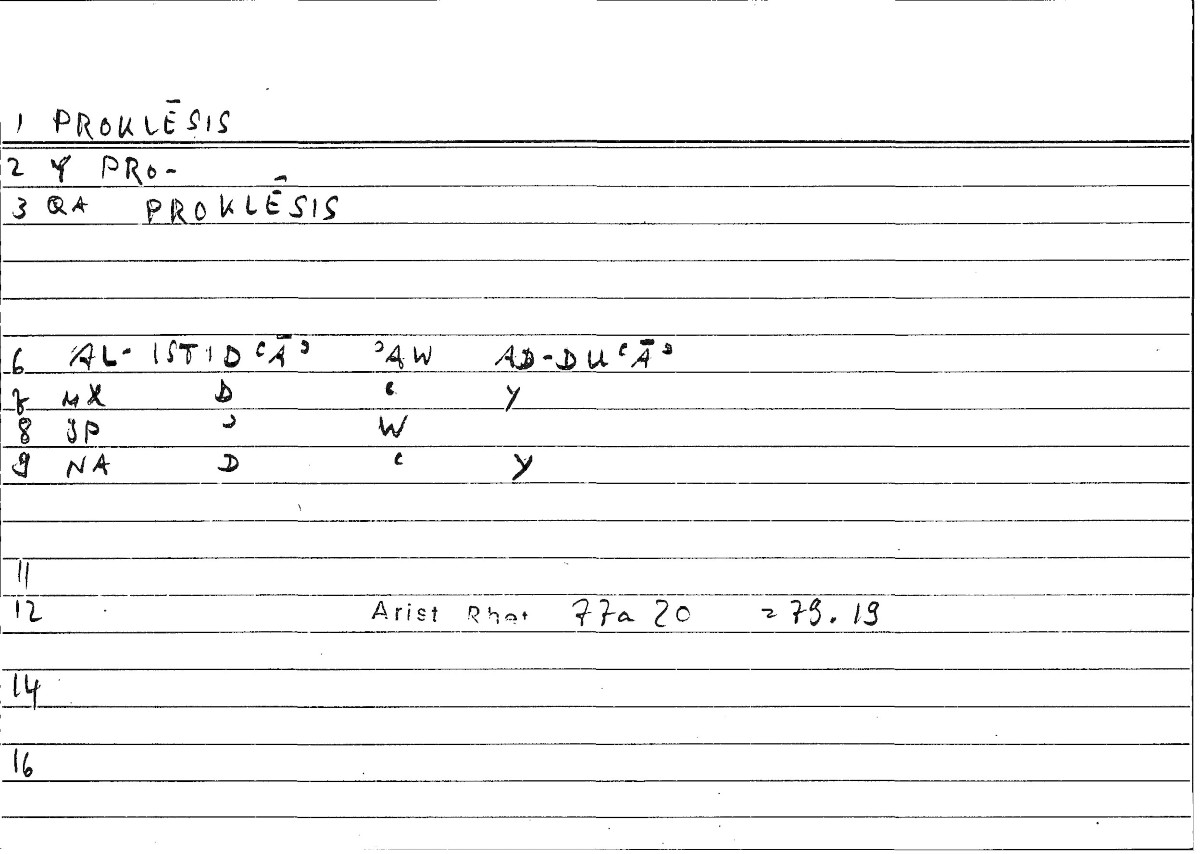 1 PROKLĒSIS
2 Y PRO-
3 QA PROKLĒSIS
6 AL-ISTIDʿĀʾ ʾAW AD-DUʿĀʾ
7 MX D ʿ Y
8 JP ʾ W
9 NA D ʿ Y
11
12 Arist Rhet 77a 20 = 79.19
14
16